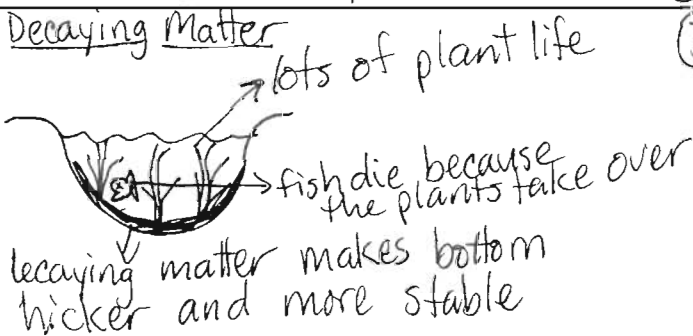 Decaying Matter
lots of plant life
fish die because
the plants take over
ecaying matter makes bottom
hicker and more stable